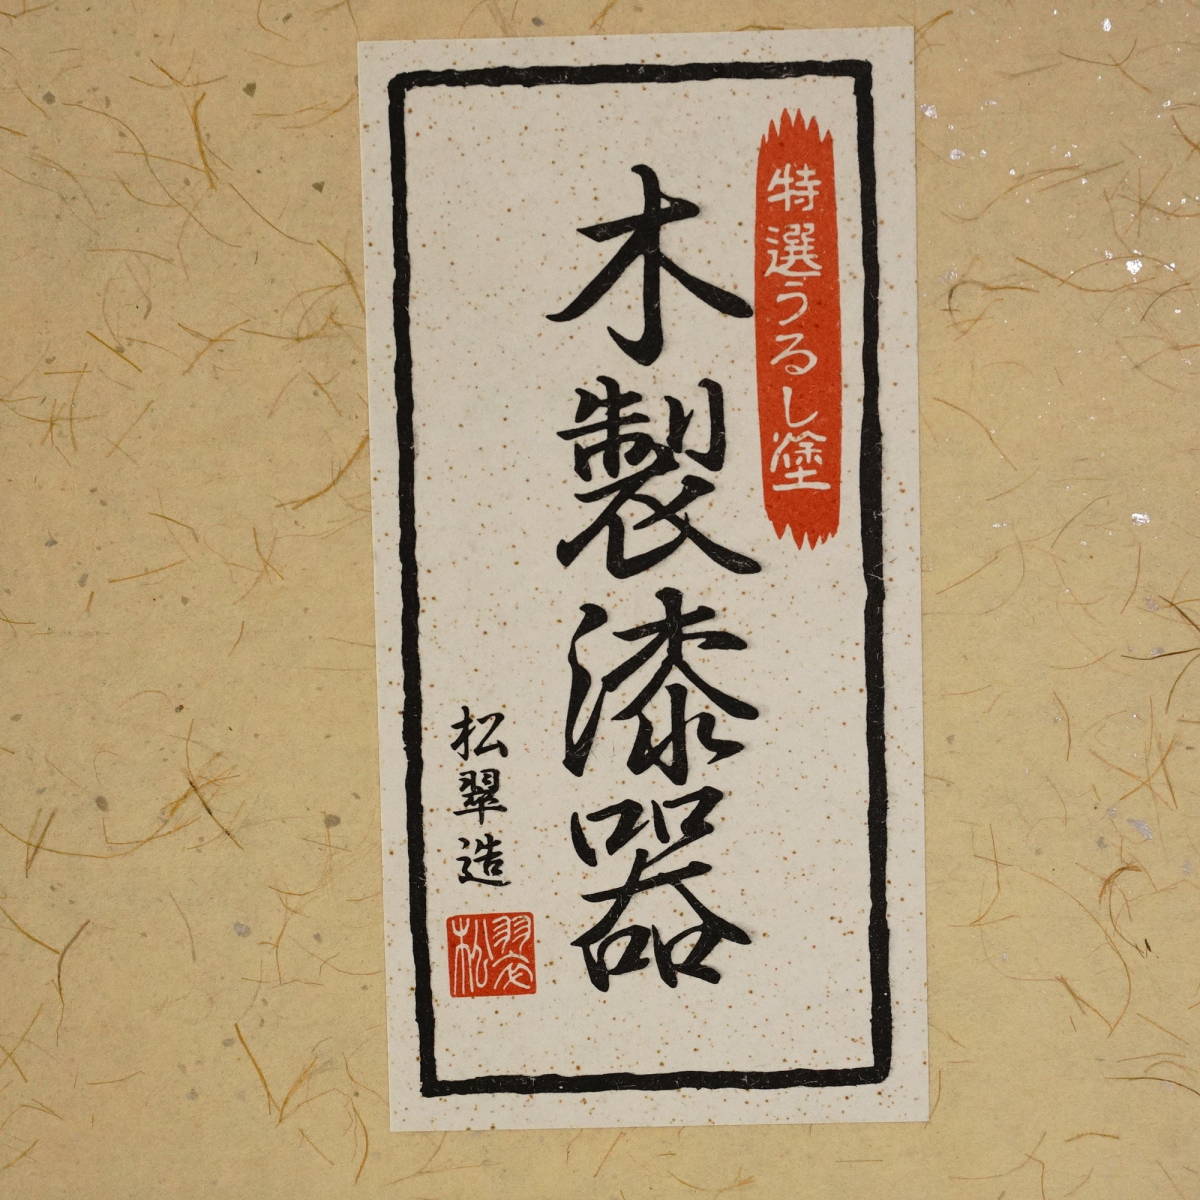 特選うるし塗
木製漆器
松翠造
翠松